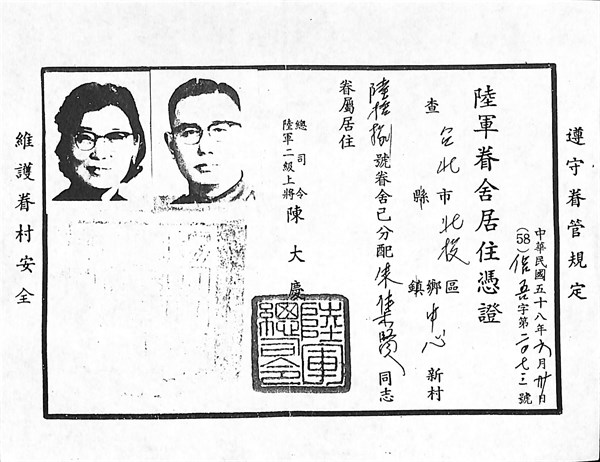 遵守眷管規定
中華民國五十八年六月廿日
(58)信吾字第二〇七三號
陸軍眷舍居住憑證
查台北市縣北投區鄉鎮中心新村
陸拾捌號眷舍已分配朱集賢同志
眷屬居住
總司令
陸軍二級上將 陳大慶
陸軍總司令
維護眷村安全